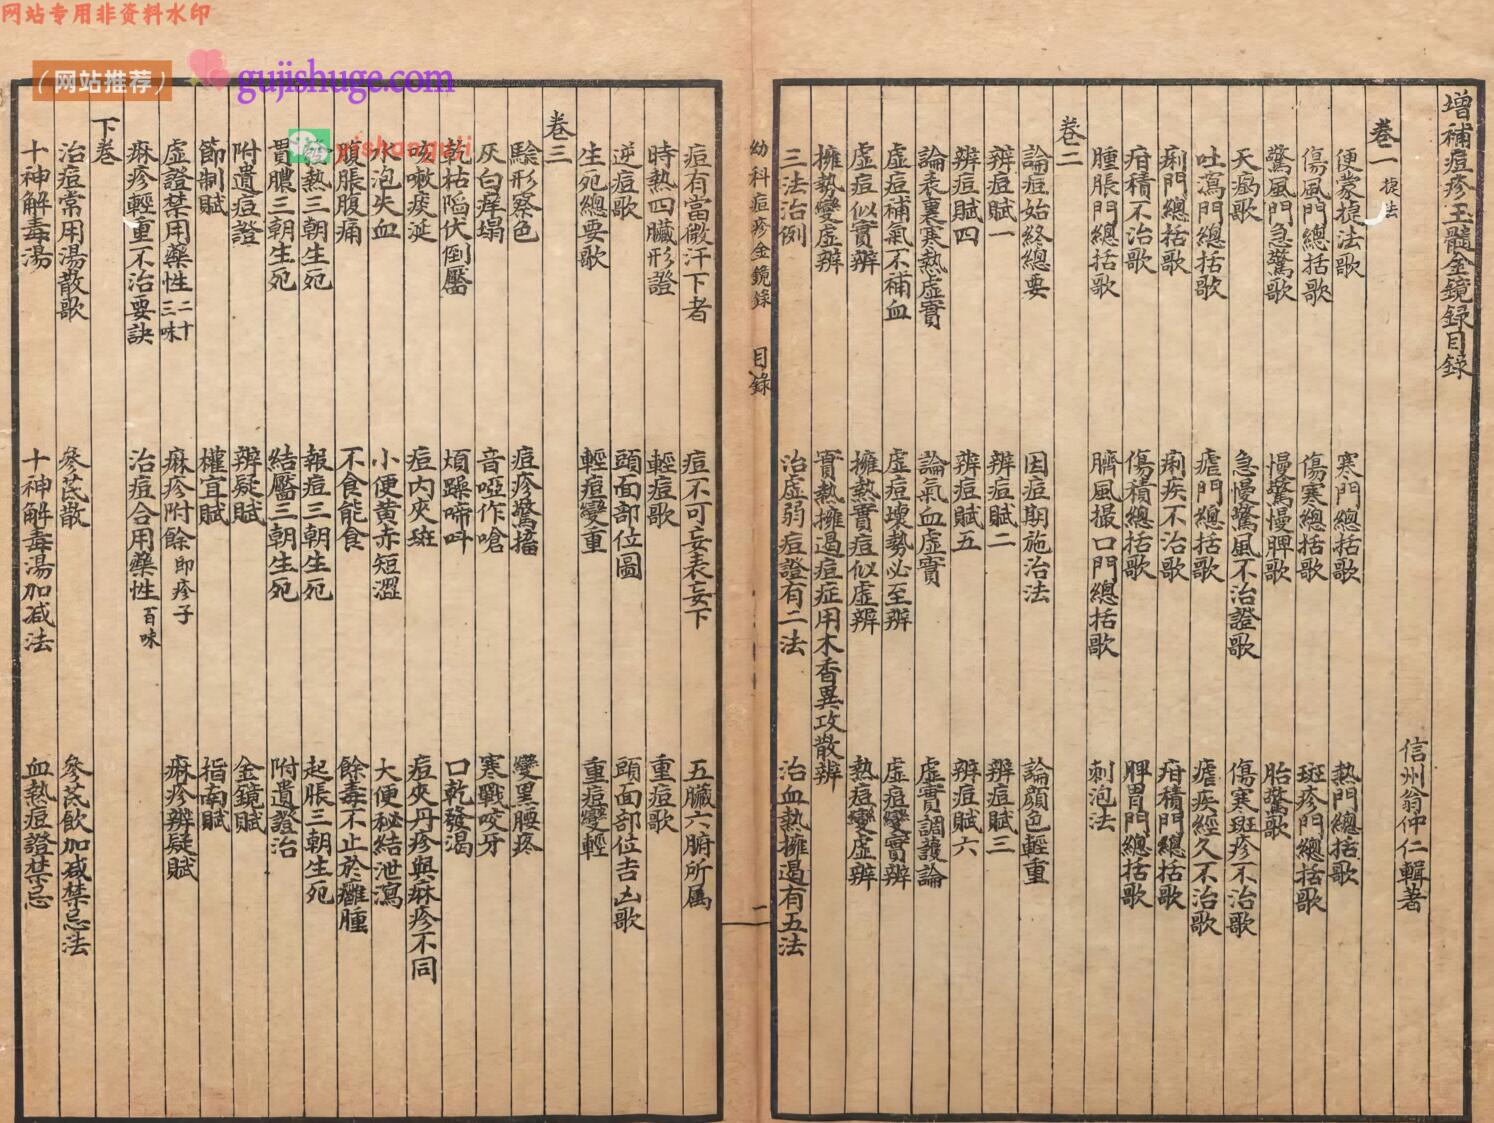 网站专用非资料水印
(网站推荐)
gujishuge.com
增補痘疹玉髓金鏡錄目錄
信州翁仲仁輯著
卷一 捷法
便蒙捷法歌 寒門總括歌 熱門總括歌
傷風門總括歌 傷寒總括歌 斑疹門總括歌
驚風門急驚歌 慢驚慢脾歌 胎驚歌
天癇歌 急慢驚風不治證歌 傷寒斑疹不治歌
吐瀉門總括歌 瘧門總括歌 瘧疾經久不治歌
痢門總括歌 痢疾不治歌 疳積門總括歌
疳積不治歌 傷積總括歌 脾胃門總括歌
腫脹門總括歌 臍風撮口門總括歌 刺泡法
卷二
論痘始終總要 因痘期施治法 論顏色輕重
辨痘賦一 辨痘賦二 辨痘賦三
辨痘賦四 辨痘賦五 辨痘賦六
論表裏寒熱虛實 論氣血虛實 虛實調護論
虛痘補氣不補血 虛痘壞勢必至辨 虛痘變實辨
虛痘似實辨 擁熱實痘似虛辨 熱痘變虛辨
擁熱變虛辨 實熱擁遏痘症用木香異攻散辨
三法治例 治虛弱痘證有二法 治血熱擁遏有五法
幼科痘疹金鏡錄 目錄 二
痘有當微汗下者 痘不可妄表妄下 五臟六腑所属
時熱四臟形證 輕痘歌 重痘歌
逆痘歌 頭面部位圖 頭面部位吉凶歌
生死總要歌 輕痘變重 重痘變輕
卷三
驗形察色 痘疹驚搐 變黑腰疼
灰白癢塌 音啞作嗆 寒戰咬牙
乾枯陷伏倒靨 煩躁啼呌 口乾發渴
咳嗽痰涎 痘内夾斑 痘夾丹疹與痳疹不同
水泡失血 小便黄赤短澀 大便秘結泄瀉
腹脹腹痛 不食能食 餘毒不止於癰腫
熱三朝生死 報痘三朝生死 起脹三朝生死
貫膿三朝生死 結靨三朝生死 附遺證治
附遺痘證 辨疑賦 金鏡賦
節制賦 權宜賦 指南賦
虛證禁用藥性二十三味 痳疹附餘即疹子 痳疹辨疑賦
痳疹輕重不治要訣 治痘合用藥性百味
下卷
治痘常用湯散歌 參芪散 參芪飲加減禁忌法
十神解毒湯 十神解毒湯加减法 血熱痘證禁忌